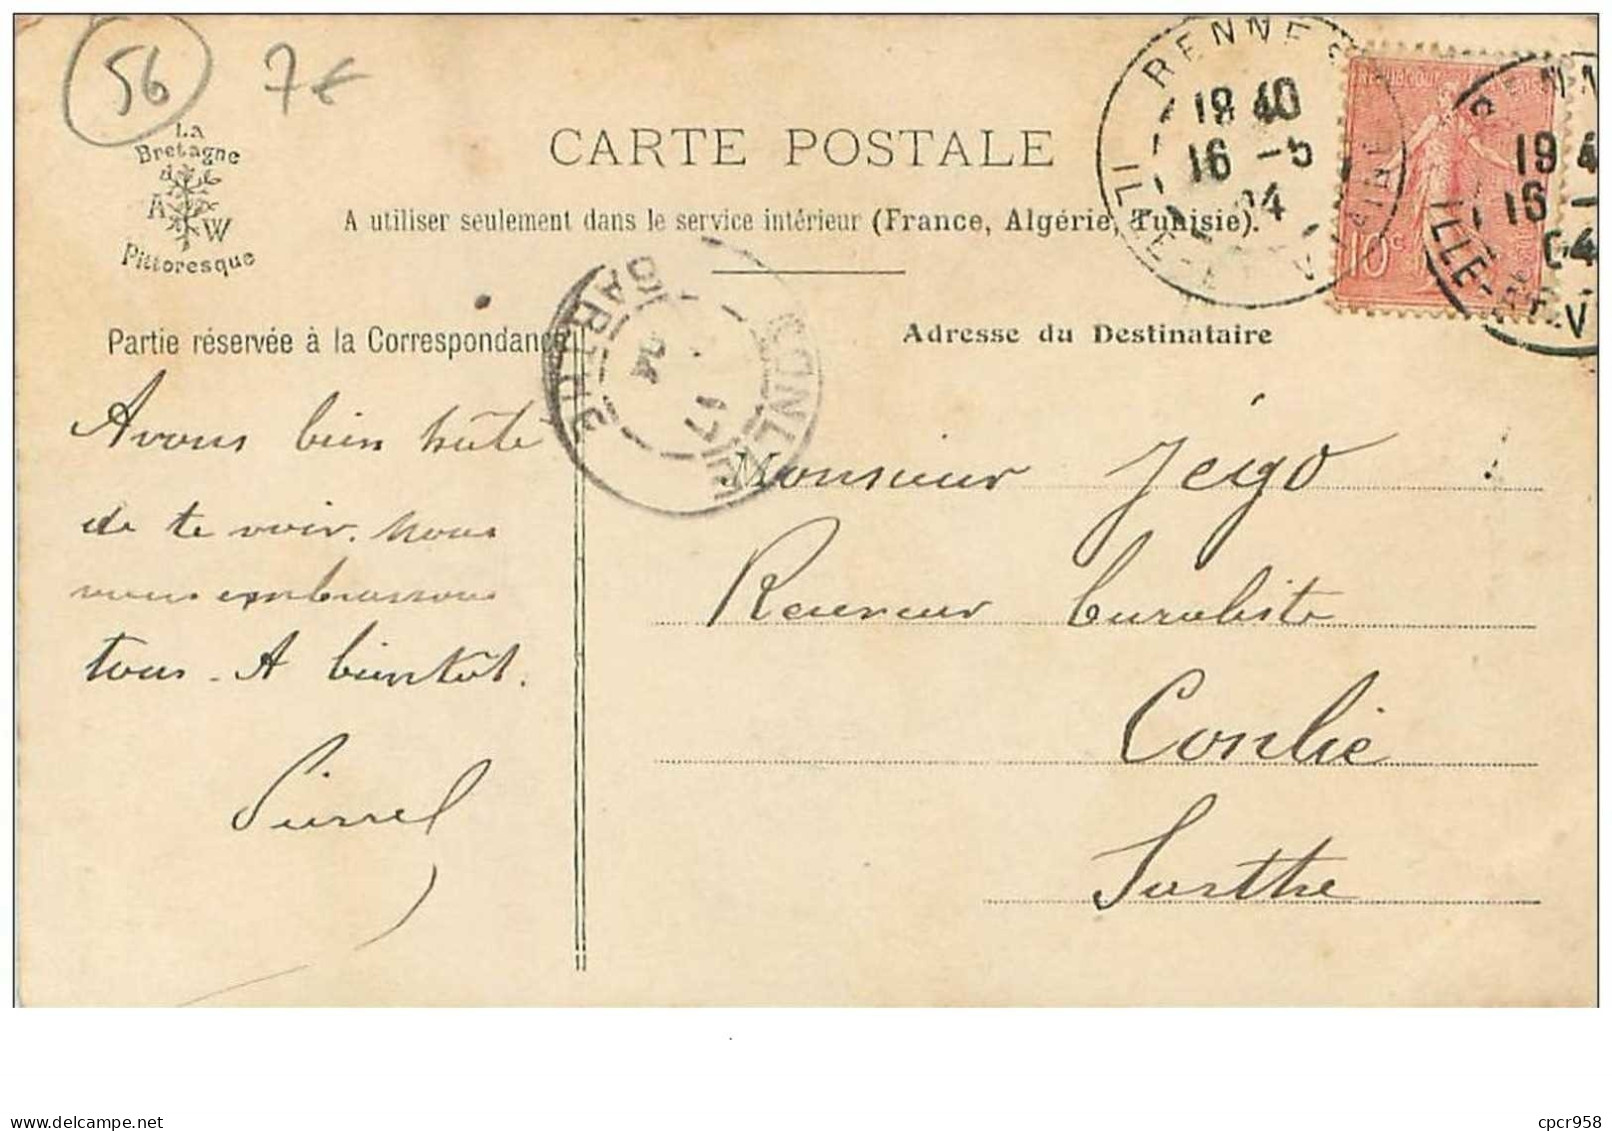 56 7€
La
Bretagne
A W
Pittoresque
CARTE POSTALE
A utiliser seulement dans le service intérieur (France, Algérie, Tunisie).
RENNES
19 40
16 -5
04
ILLE-ET-VILAINE
10c
19 4
16 -
04
CONLIE
SARTHE
17
04
Partie réservée à la Correspondance
Adresse du Destinataire
Avons bien hâte
de te voir. Nous
vous embrassons
tous. A bientôt.
Monsieur Jégo
Receveur buraliste
Conlie
Sarthe
delcampe.net
cpcr958